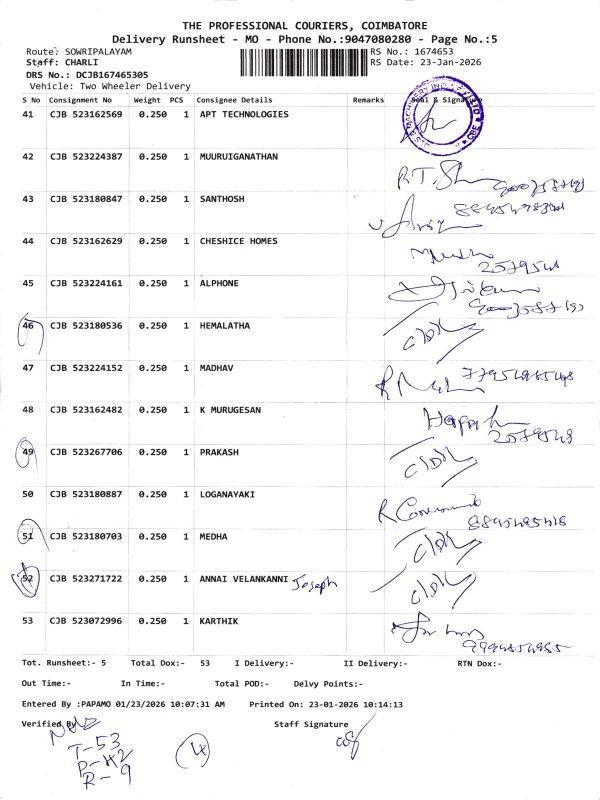 THE PROFESSIONAL COURIERS, COIMBATORE
Delivery Runsheet - MO - Phone No.:9047080280 - Page No.:5
Route: SOWRIPALAYAM RS No.: 1674653
Staff: CHARLI RS Date: 23-Jan-2026
DRS No.: DCJB167465305
Vehicle: Two Wheeler Delivery
S No Consignment No Weight PCS Consignee Details Remarks Seal & Signature
41 CJB 523162569 0.250 1 APT TECHNOLOGIES
42 CJB 523224387 0.250 1 MUURUIGANATHAN
43 CJB 523180847 0.250 1 SANTHOSH
44 CJB 523162629 0.250 1 CHESHICE HOMES
2579548
45 CJB 523224161 0.250 1 ALPHONE
46 CJB 523180536 0.250 1 HEMALATHA
47 CJB 523224152 0.250 1 MADHAV
48 CJB 523162482 0.250 1 K MURUGESAN
2579548
49 CJB 523267706 0.250 1 PRAKASH
50 CJB 523180887 0.250 1 LOGANAYAKI
51 CJB 523180703 0.250 1 MEDHA
52 CJB 523271722 0.250 1 ANNAI VELANKANNI Joseph
53 CJB 523072996 0.250 1 KARTHIK
Tot. Runsheet:- 5 Total Dox:- 53 I Delivery:- II Delivery:- RTN Dox:-
Out Time:- In Time:- Total POD:- Delvy Points:-
Entered By :PAPAMO 01/23/2026 10:07:31 AM Printed On: 23-01-2026 10:14:13
Verified By Staff Signature
T-53
D-42
R-9
4